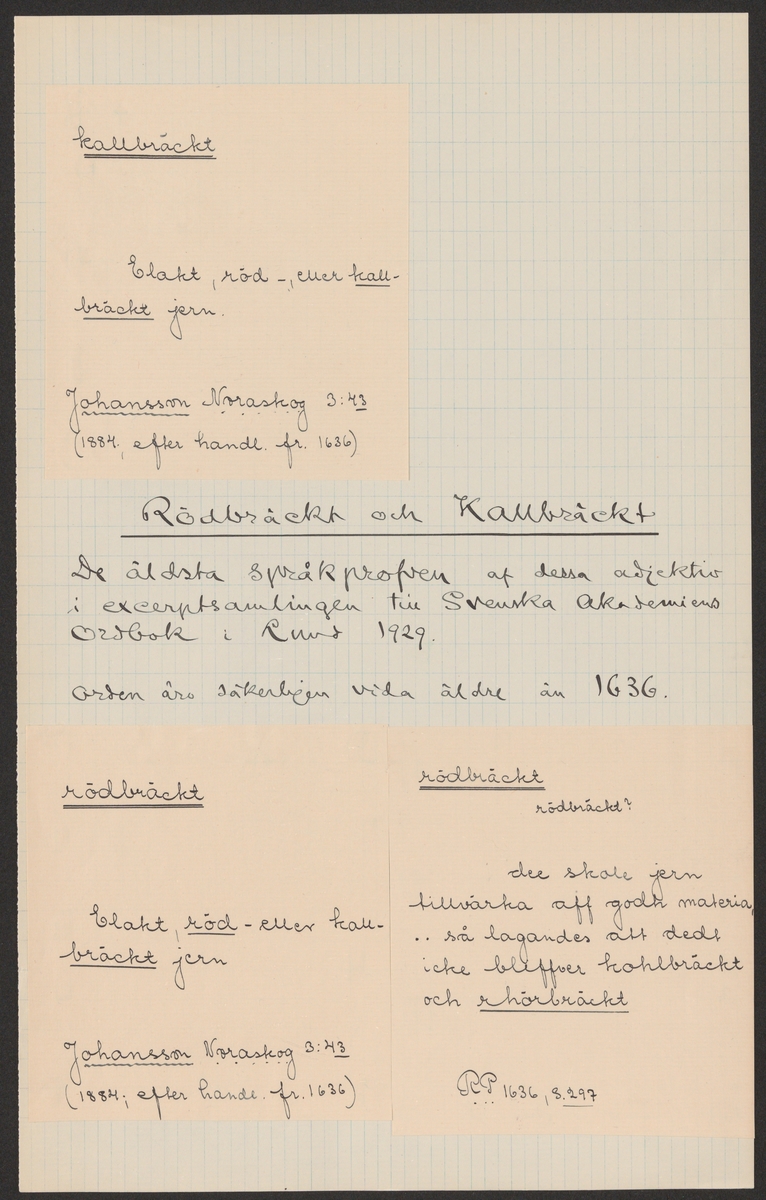 kallbräckt
Elakt, röd-, eller kall-
bräckt jern.
Johansson Noraskog 3:43
(1884; efter handl. fr. 1636)
Rödbräckt och Kallbräckt
De äldsta språkprofven af dessa adjektiv
i excerptsamlingen till Svenska Akademiens
Ordbok i Lund 1929.
Orden äro säkerligen vida äldre än 1636.
rödbräckt
Elakt, röd- eller kall-
bräckt jern
Johansson Noraskog 3:43
(1884; efter handl. fr. 1636)
rödbräckt
rödbräckt?
dee skole jern
tillvärka aff godh materia,
.. så lagandes att dedt
icke bliffver kohlbräckt
och rhörbräckt
RP 1636, s. 297